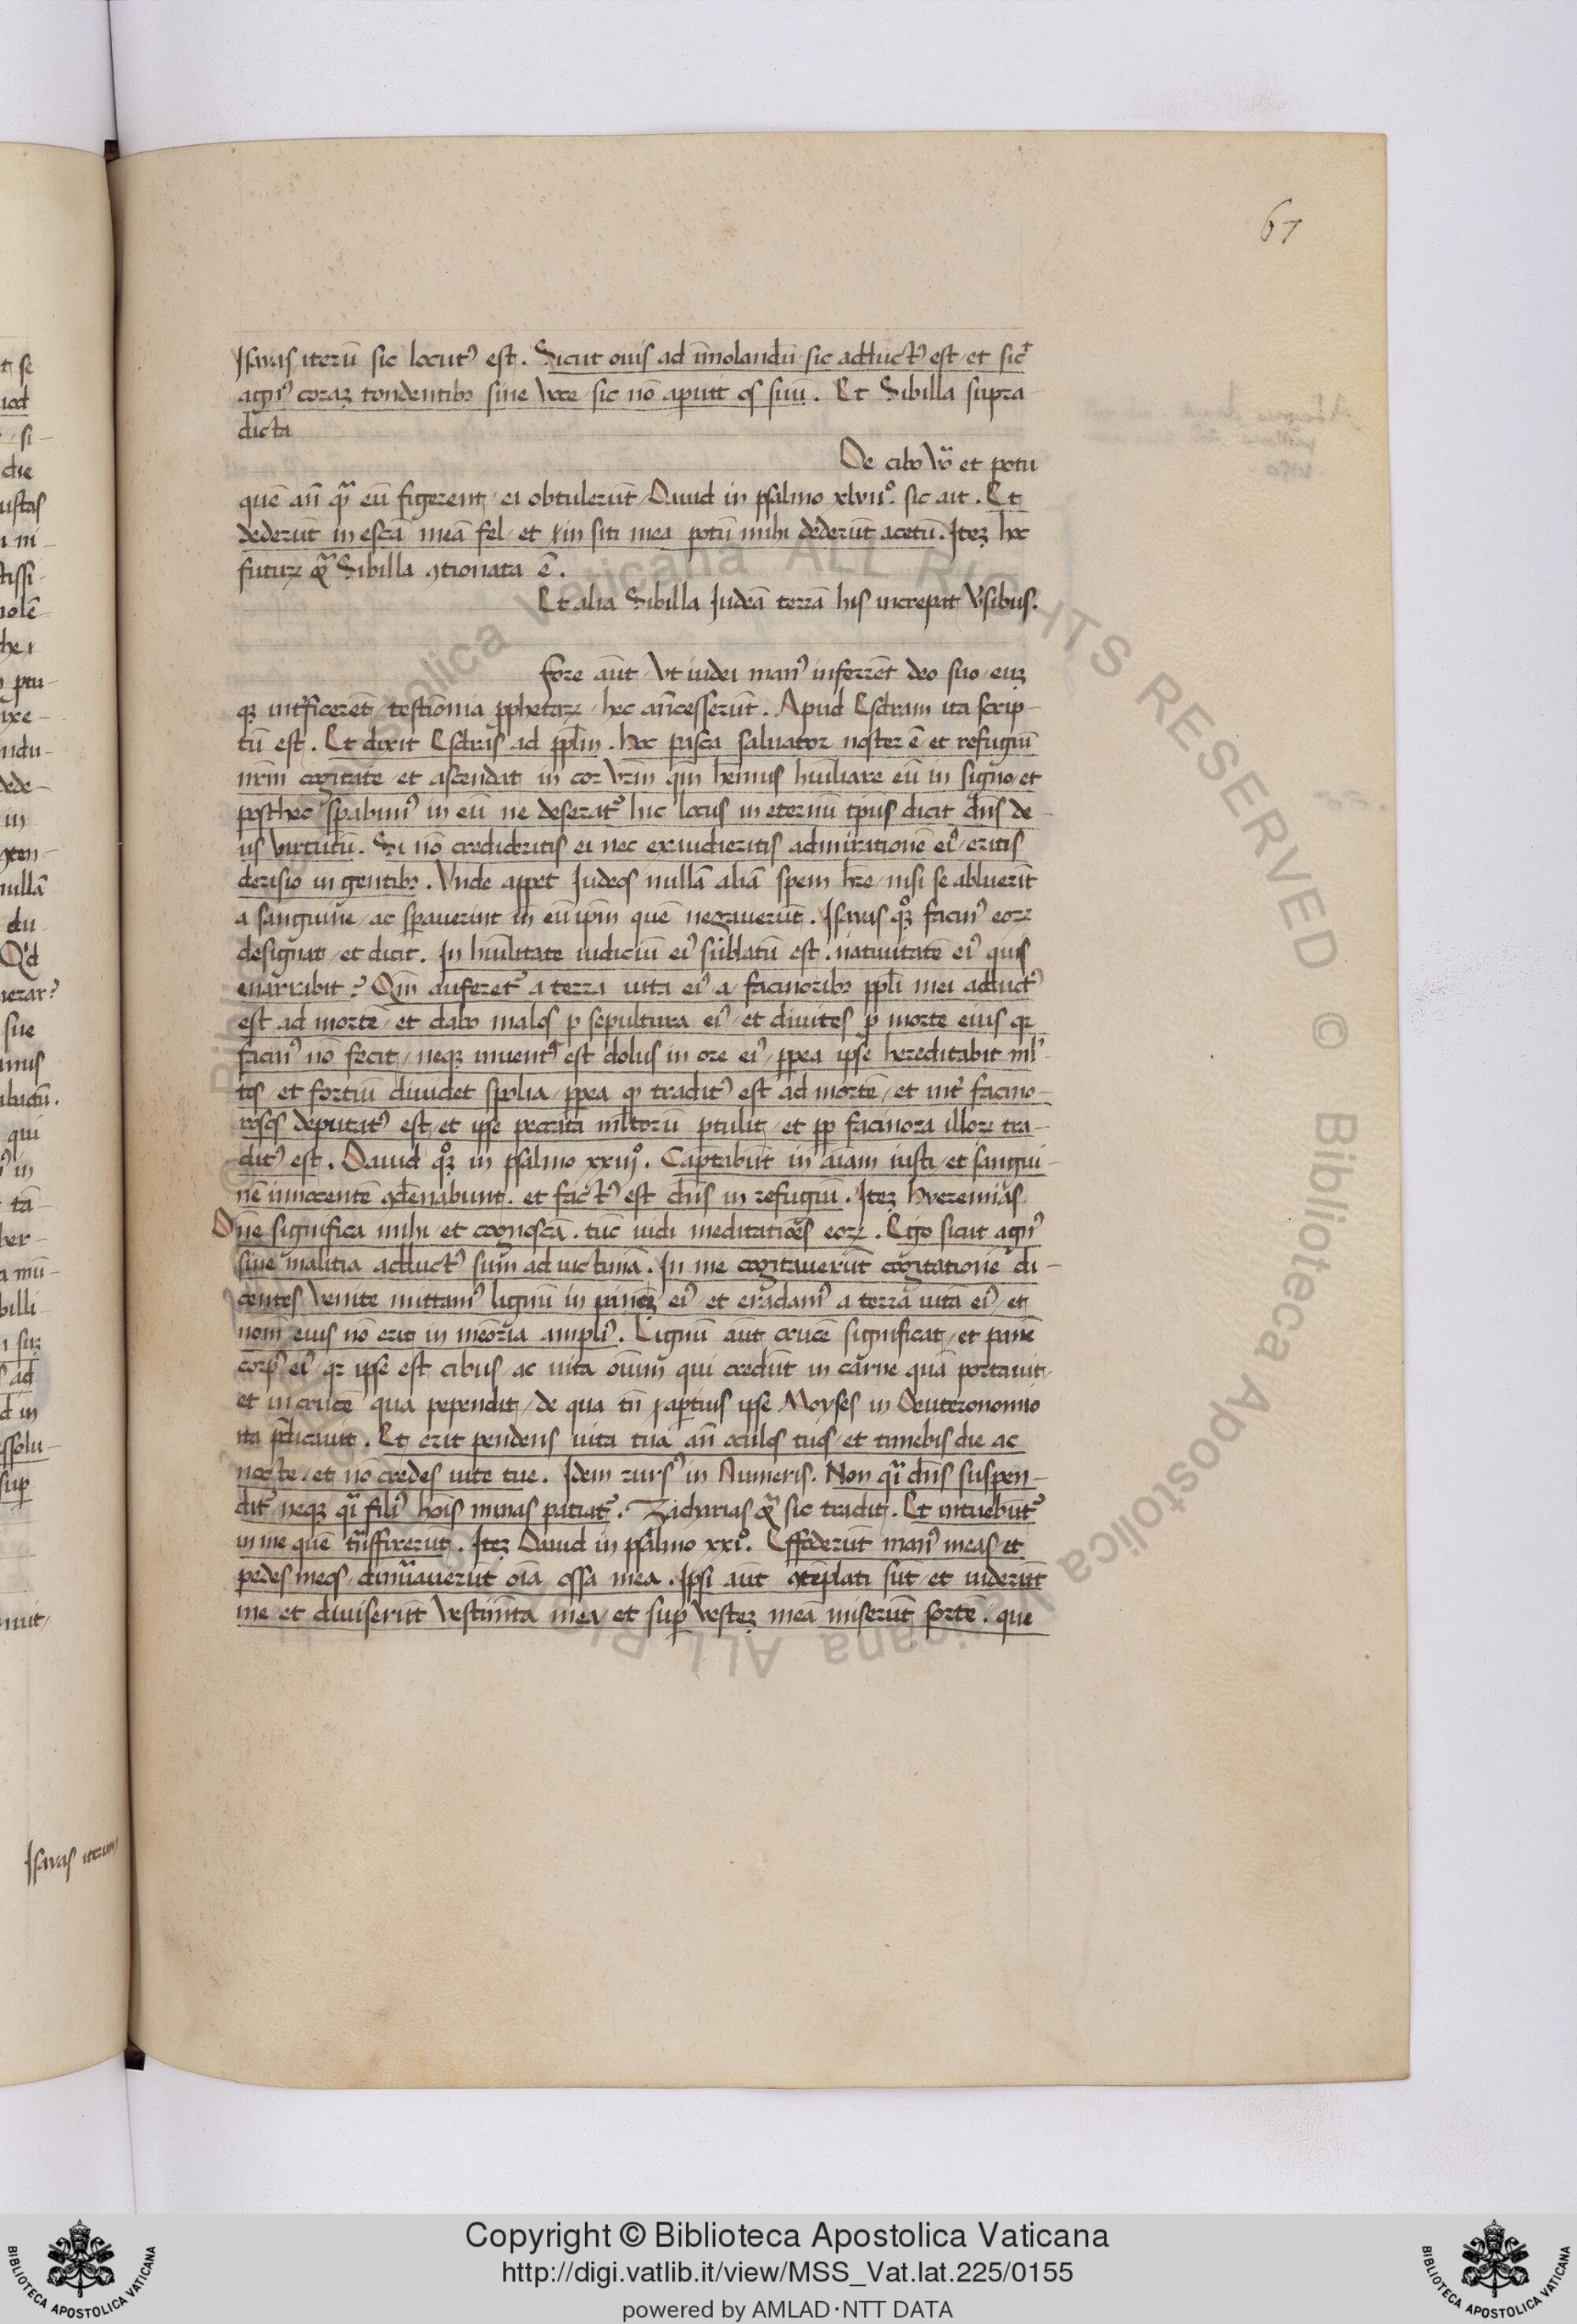 67
Isaias iterū sic locutꝰ est. Sicut ouis ad īmolandū sic adductꝰ est et sic̄
agnꝰ coraꝫ tondentibꝰ sine voce sic nō aperuit os suū. Et Sibilla supra
dicta
De cibo vō et potu
quē an̄ qͣ eū figerent ei obtulerūt Dauid in psalmo xlviiº. sic ait. Et
dederūt in escā meā fel et in siti mea potū mihi dederūt acetū. Iteꝫ hoc
futuꝝ Sibilla ꝯtionata ē.
Et alia Sibilla Iudeā terrā his increpat vsibus.
fore aūt vt iudei manꝰ inferrēt deo suo euꝫ
qꝫ intficerēt testiōnia ꝓphetaꝝ hec an̄cesserūt. Apud Esdram ita scrip-
tū est. Et dixit Esdras ad ppl̄m. hoc pasca saluator noster ē et refugiū
nrm̄ cogitate et ascendat in cor vrm̄ qm̄ hēmus hūiliare eū in signo et
posthec spabimꝰ in eū ne deserat̉ hic locus in eternū tp̄us dicit dn̄s de-
us virtutū. Si nō credideritis ei nec exaudieritis admiratiōnē eiꝰ eritis
derisio in gentibꝰ. Vnde appet Iudeos nullā aliā spem hr̄e nisi se abluerīt
a sanguine ac spauerint in eū ip̄m quē negauerūt. Isaias qº̨ facinꝰ eoꝝ
designat et dicit. In hūilitate iudiciū eiꝰ sublatū est. natiuitatē eiꝰ quis
enarrabit? Qm̄ auferet̉ a terra uita eiꝰ a facinoribꝰ ppl̄i mei adductꝰ
est ad mortē et dabo malos p sepultura eiꝰ et diuites p morte eius qꝛ
facinꝰ nō fecit neqꝫ inuentꝰ est dolus in ore eiꝰ ꝓpea ipse hereditabit ml̓-
tos et fortiū diuidet spolia ꝓpea qꝫ traditꝰ est ad mortē et int̓ facino-
rosos deputatꝰ est et ipse peccata ml̓torū ptulit et ꝓp facinora illoꝝ tra-
ditꝰ est. Dauid qº̨ in psalmo xxiiiº. Captabūt in aīam iusti et sangui-
nē innocentē ꝯdēnabunt. et factꝰ est dn̄s in refugiū. Iteꝫ hieremias
Dn̄e significa mihi et cognoscā. tūc uidi meditatiōes eoꝝ. Ego sicut agnꝰ
sine malitia adductꝰ sum ad uictimā. In me cogitauerūt cogitatione di-
centes venite mittamꝰ lignū in paneꝫ eiꝰ et eradamꝰ a terra uitā eiꝰ et
nom̄ eius nō erit in meōria ampliꝰ. Lignū aūt crucē significat et panē
corpꝰ eiꝰ qꝛ ipse est cibus ac uita oīum qui credūt in carne quā portauit
et in cruce qua pependit de qua tn̄ aptius ipse Moyses in Deuteronomio
ita pdicauit. Et erit pendens uita tua an̄ oculos tuos et timebis die ac
nocte et nō credes uite tue. Idem rursꝰ in Numeris. Non qͣi dn̄s suspen-
dit̉ neqꝫ qͣi filiꝰ hoīs minas patiat̉. Zacharias qͣ sic tradit. Et intuebūt̉
in me quē tͣnsfixerūt. Iteꝫ Dauid in psalmo xxiº. Effoderūt manꝰ meas et
pedes meos dinūauerūt oīa ossa mea. Ipsi aūt ꝯtēplati sūt et uiderūt
me et diuiserūt vestimn̄ta mea et sup vesteꝫ meā miserūt sortē. que
Isaias iterum
Copyright © Biblioteca Apostolica Vaticana
http://digi.vatlib.it/view/MSS_Vat.lat.225/0155
powered by AMLAD·NTT DATA
BIBLIOTECA APOSTOLICA VATICANA
BIBLIOTECA APOSTOLICA VATICANA